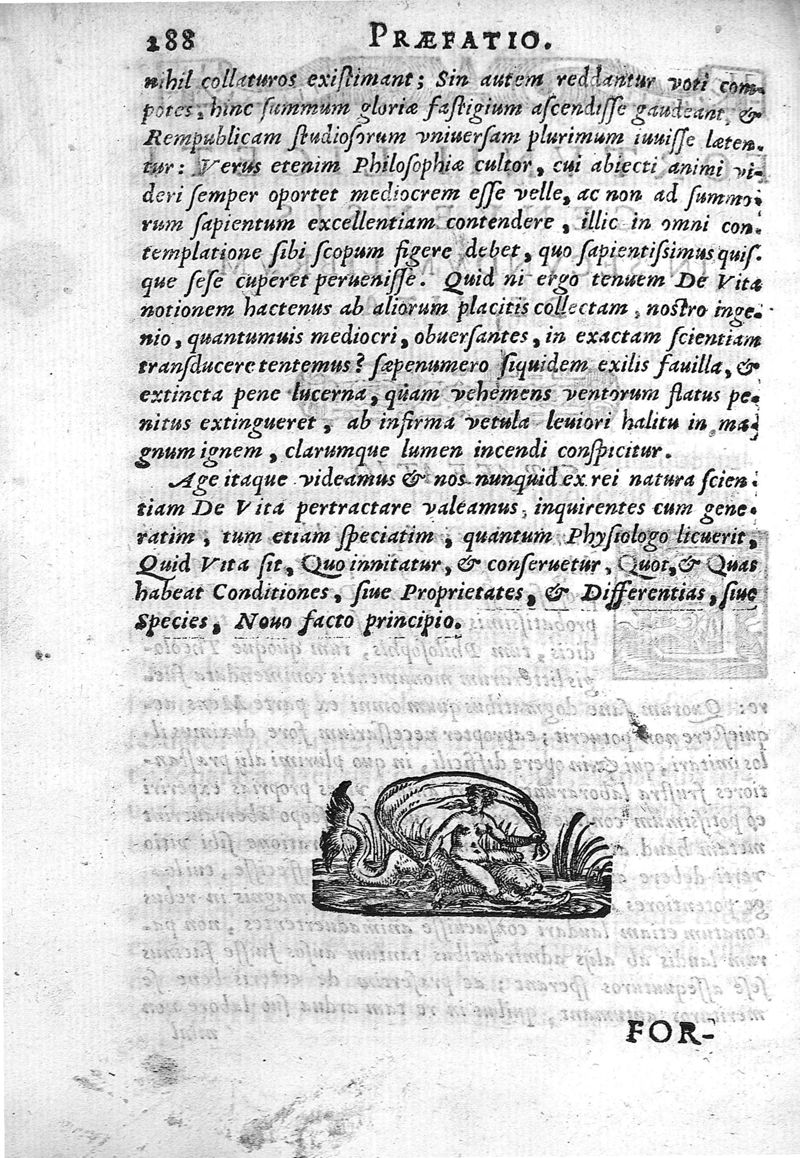 288 PRÆFATIO.
nihil collaturos exiſtimant; Sin autem reddantur voti com-
potes, hinc ſummum gloriæ faſtigium aſcendiſſe gaudeant, &
Rempublicam ſtudioſorum vniuerſam plurimum iuuiſſe læten-
tur: Verus etenim Philoſophiæ cultor, cui abiecti animi vi-
deri ſemper oportet mediocrem eſſe velle, ac non ad ſummo-
rum ſapientum excellentiam contendere, illic in omni con-
templatione ſibi ſcopum figere debet, quo ſapientiſsimus quiſ-
que ſeſe cuperet perueniſſe. Quid ni ergo tenuem De Vita
notionem hactenus ab aliorum placitis collectam, noſtro inge-
nio, quantumuis mediocri, obuerſantes, in exactam ſcientiam
tranſducere tentemus? ſæpenumero ſiquidem exilis fauilla, &
extincta pene lucerna, quam vehemens ventorum flatus pe-
nitus extingueret, ab infirma vetula leuiori halitu in ma-
gnum ignem, clarumque lumen incendi conſpicitur.
Age itaque videamus & nos nunquid ex rei natura ſcien-
tiam De Vita pertractare valeamus, inquirentes cum gene-
ratim, tum etiam ſpeciatim, quantum Phyſiologo licuerit,
Quid Vita ſit, Quo innitatur, & conſeruetur, Quot, & Quas
habeat Conditiones, ſiue Proprietates, & Differentias, ſiue
Species, Nouo facto principio.
FOR-